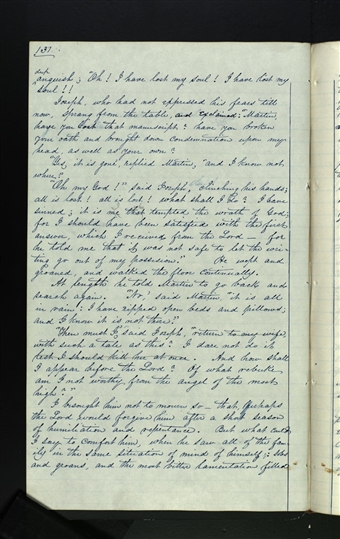 131.
deep
anguish; "Oh! I have lost my soul! I have lost my
soul!!
Joseph, who had not expressed his fears till
now, sprang from the table, and exclaimed: "Martin,
have you lost that manuscript? have you broken
your oath and brought down condemnation upon my
head, as well as your own?
"Yes, it is gone, replied Martin, "and I know not
where."
"Oh my God!" said Joseph, clinching his hands;
all is lost! all is lost! what shall I do? I have
sinned; it is me that tempted the wrath of God;
for I should have been satisfied with the first
answer, which I received from the Lord; for
he told me that it was not safe to let the wri-
ting go out of my possession." He wept and
groaned, and walked the floor continually.
At length he told Martin to go back and
search again. "No," said Martin, "it is all
in vain; I have ripped open beds and pillows;
and I know it is not there."
"Then must I" said Joseph, "return to my wife
with such a tale as this? I dare not do it
lest I should kill her at once. And how shall
I appear before the Lord? Of what rebuke
am I not worthy from the angel of the most
high?"
I besought him not to mourn so— that perhaps
the Lord would forgive him, after a short season
of humiliation and repentance. But what could
I say to comfort him, when he saw all of the fam
ily in the same situation of mind of himself;
and groans, and the most bitter lamentation filled